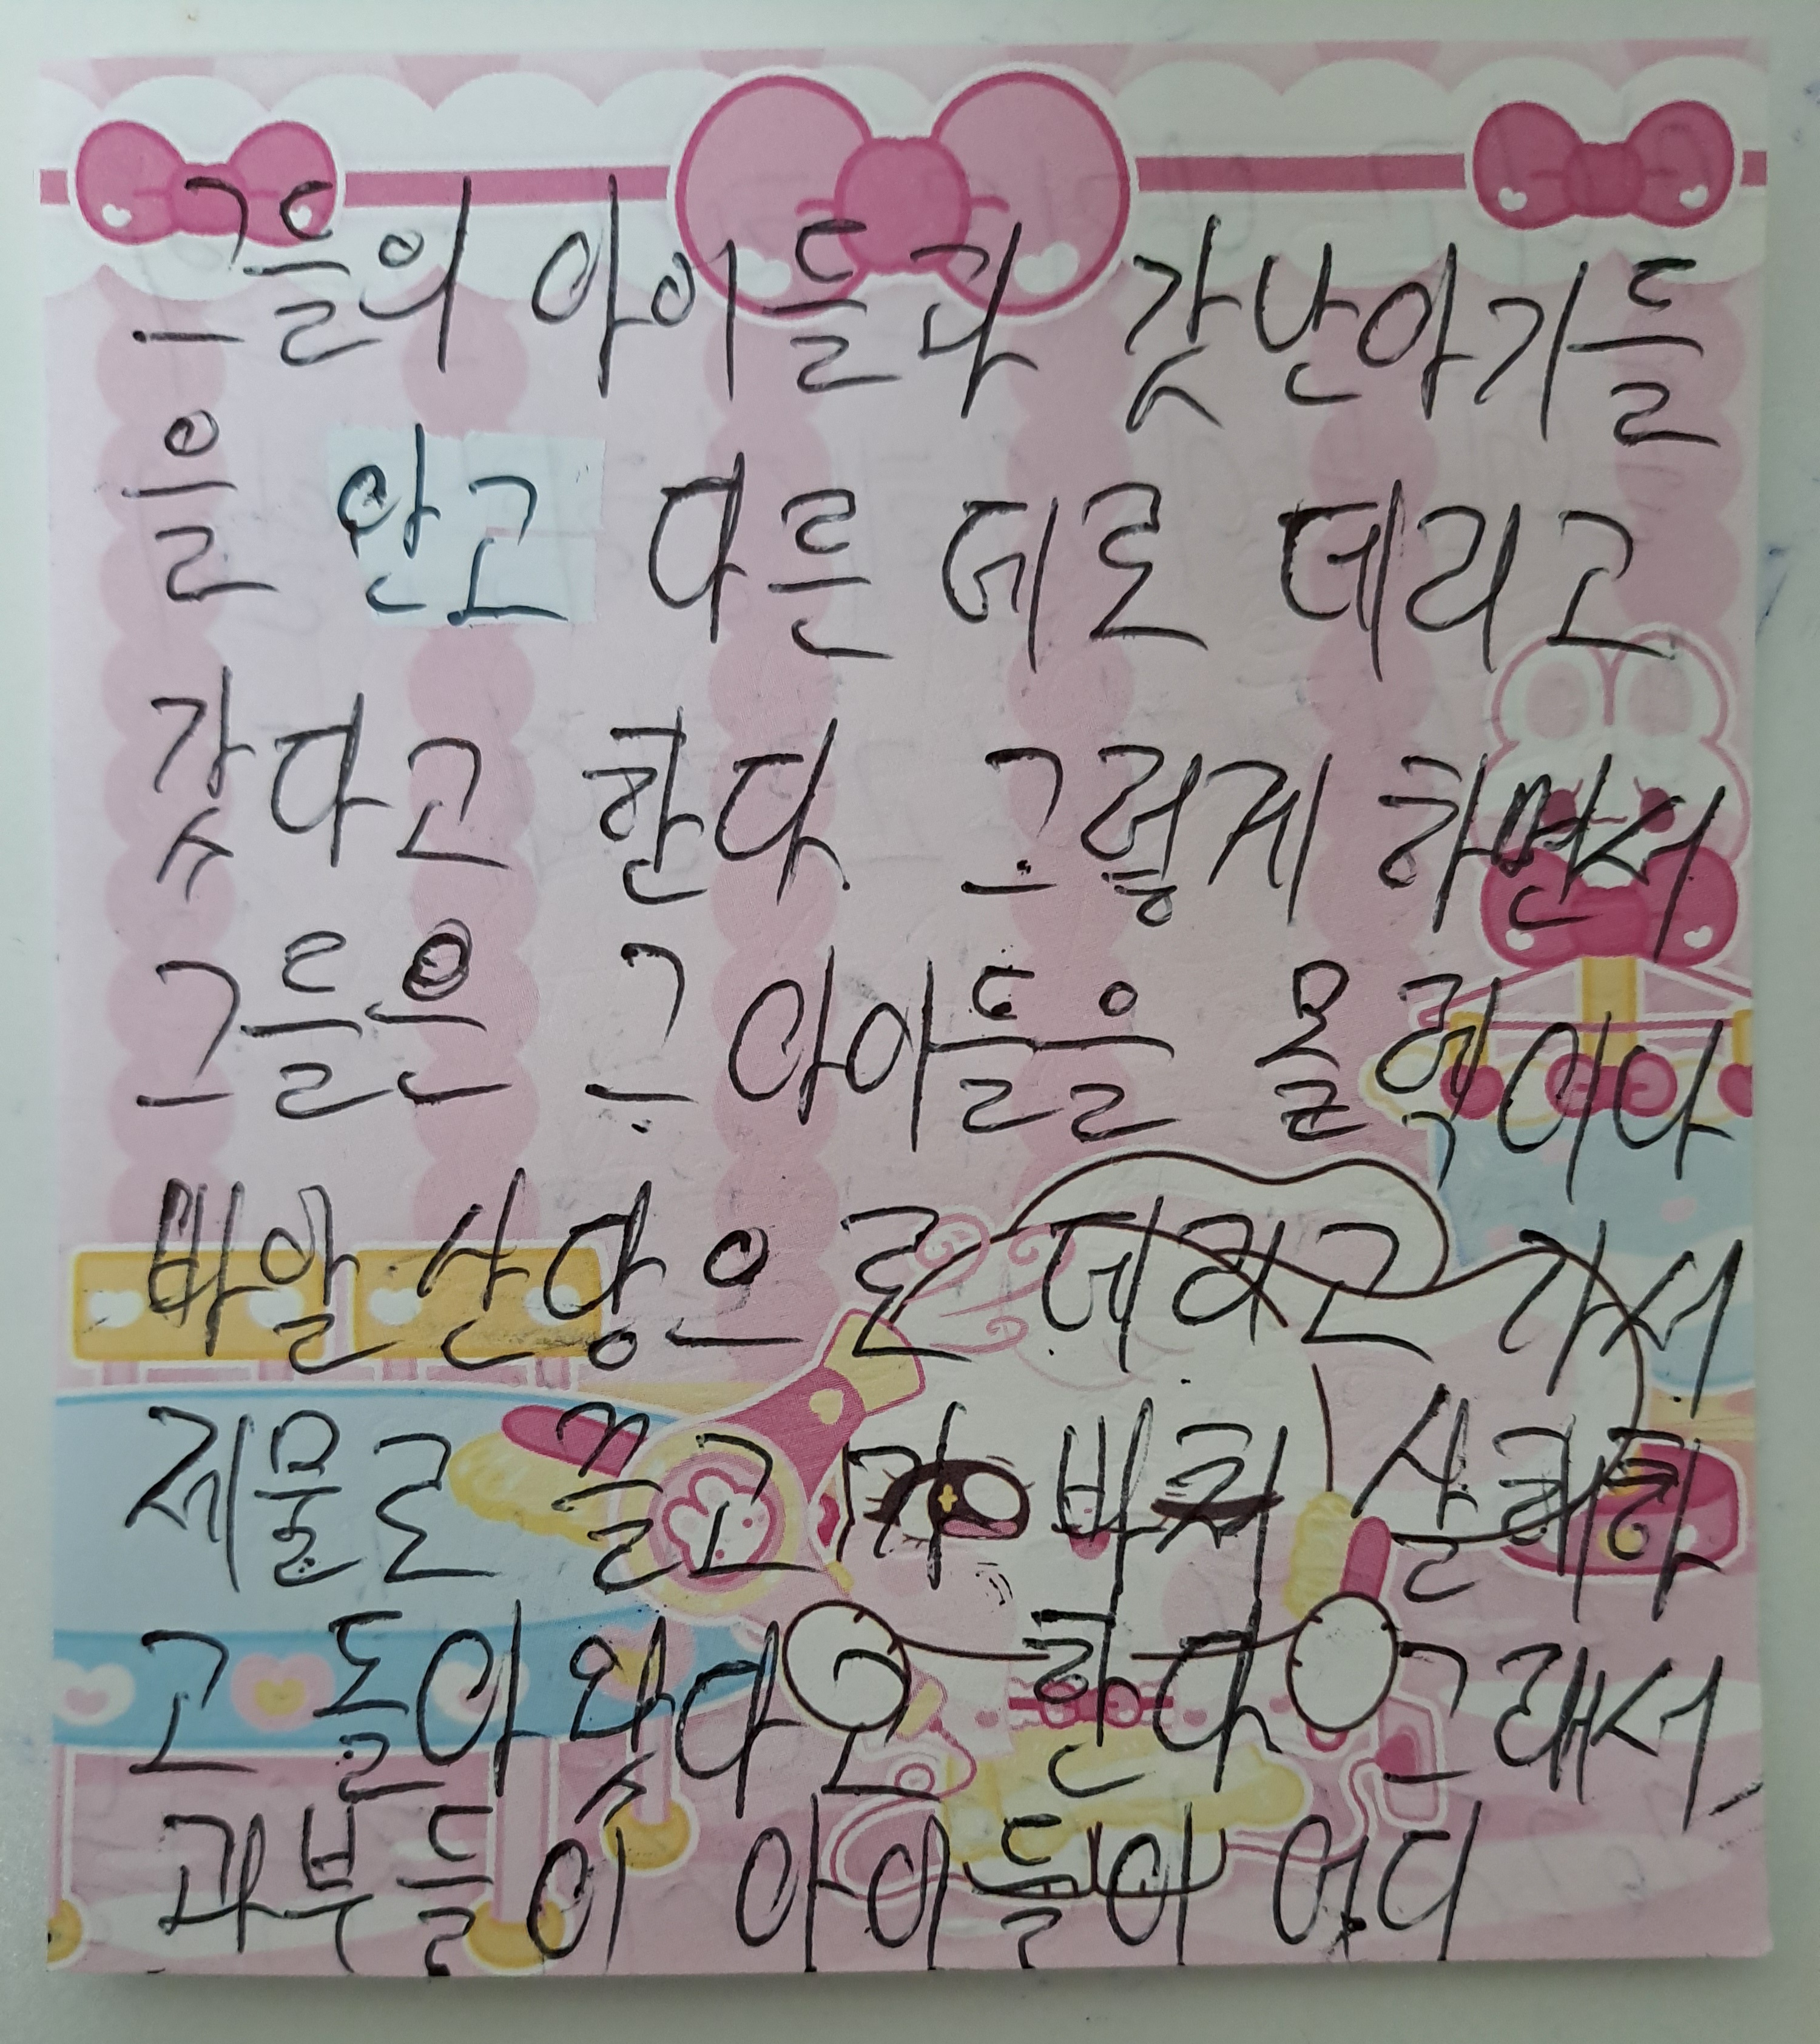 그들의 아이들과 갖난아기들
을 안고 다른 데로 데리고
갖다고 한다. 그렇게 하면서
그들은 그 아이들을 몰렉이나
바알 산당으로 데리고 가서
제물로 끌고 가 바쳐 살해하
고 돌아왓다고 한다 그래서,
과부들이 아이들이 어디